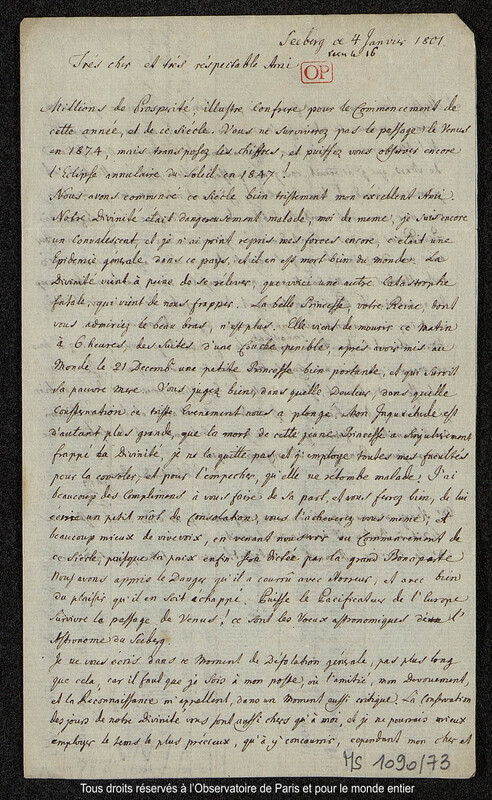 Seeberg ce 4 Janvier 1801.
recu le 16
Très cher et très respectable Ami
OP
Millions de Prosperité, illustre Confrere pour le Commencement de
cette année, et de ce Siécle. Vous ne surviverez pas le passage de Venus
en 1874, mais transposez les chiffres, et puissiez vous observer encore
l'Eclipse annulaire du Soleil en 1847!
Nous avons commencé ce Siécle bien tristement mon excellent Ami.
Notre Divinité etait dangereusement malade, moi de meme, je suis encore
un Convalescent, et je n'ai point repris mes forces encore, c'etait une
Epidemie generale dans ce pays, et il en est mort bien du monde. La
Divinité vient à peine de se relever, que voici une autre Catastrophe
fatale, qui vient de nous frapper. La belle Princesse, votre Reine, dont
vous admiriez le beau bras, n'est plus. Elle viens de mourir ce matin
à 6 heures, des Suites d'une Couche penible, après avoir mis au
Monde le 21 Decembr. une petite Princesse bien portante, et qui survit
sa pauvre Mere. Vous jugez bien, dans quelle Douleur, dans quelle
Consternation ce triste Evenement nous a plongé. Mon Inquietude est
d'autant plus grande, que la mort de cette jeune Princesse a singulierement
frappé La Divinité, je ne la quitte pas et j'y employe toutes mes facultés
pour la consoler, et pour l'empecher, qu'elle ne retombe malade. J'ai
beaucoup des Complimens à vous faire de sa part, et vous ferez bien, de lui
ecrire un petit môt de Consolation, vous l'acheverez vous meme, et
beaucoup mieux de vive voix, en venant nous voir au Commencement de
ce Siécle, puisque la paix enfin sera dictée par le grand Bonaparte
Nous avons appris le Danger qu'il a courru avec horreur, et avec bien
du plaisir qu'il en soit echappé. Puisse le Pacificateur de l'Europe
survivre le passage de Venus! ce sont les Voeux astronomiques de l'
Astronome du Seeberg.
Je ne vous ecris dans ce Moment de Désolation générale, pas plus long
que cela, car il faut que je sois à mon poste, où l'amitié, mon devouement,
et la Reconnaissance m'appellent, dans un Moment aussi critique. La Conservation
des jours de notre Divinité vous sont aussi chers qu'à moi, et je ne pourrais mieux
employer le tems le plus précieux, qu'à y concourrir, cependant mon cher et
MS 1090/73
Tous droits réservés à l'Observatoire de Paris et pour le monde entier